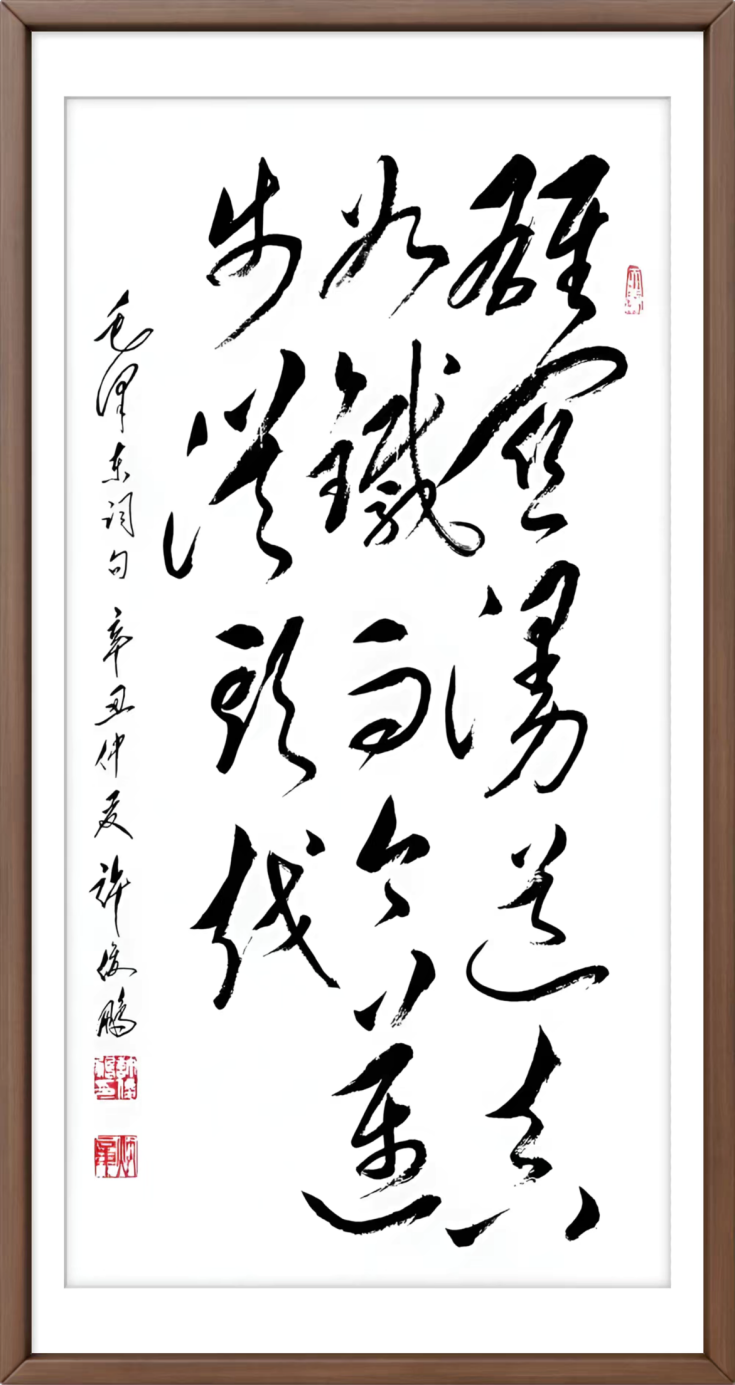 雄關漫道真
如鐵而今邁
步從頭越
毛泽东词句 辛丑仲夏 许俊鹏